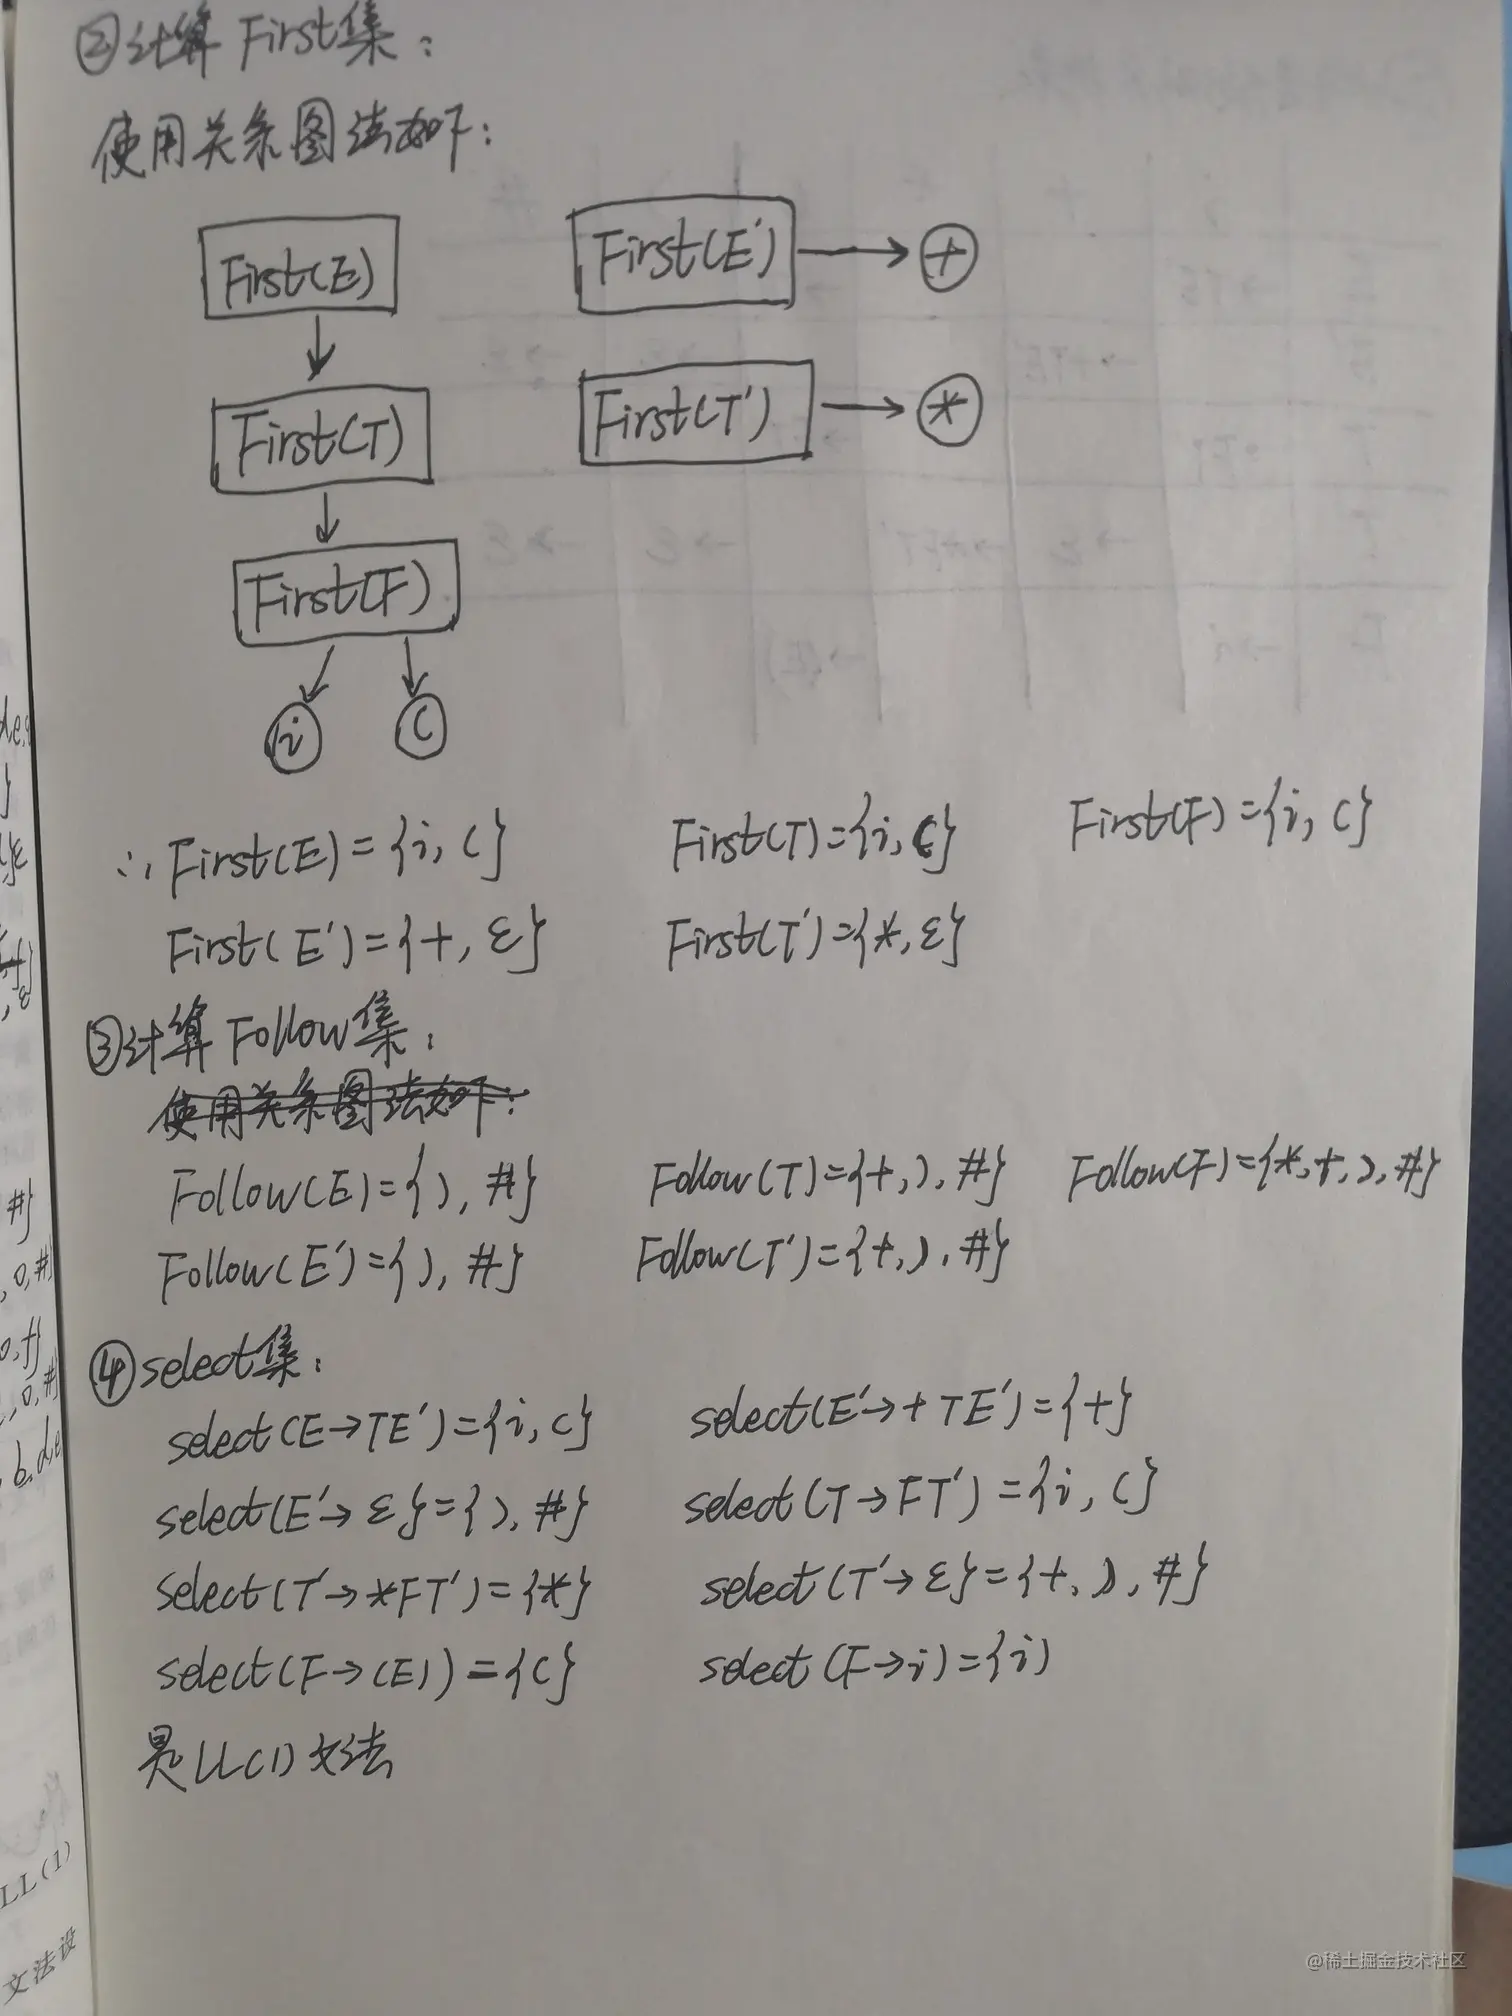 ②计算First集：
使用关系图法如下：
First(E) First(E') → +
First(T) First(T') → *
First(F)
i (
∴ First(E)={i, (} First(T)={i, (} First(F)={i, (}
First(E')={+, ε} First(T')={*, ε}
③计算Follow集：
使用关系图法如下：
Follow(E)={), #} Follow(T)={+, ), #} Follow(F)={*, +, ), #}
Follow(E')={), #} Follow(T')={+, ), #}
④select集：
select(E→TE')={i, (} select(E'→+TE')={+}
select(E'→ε}={), #} select(T→FT')={i, (}
select(T'→*FT')={*} select(T'→ε}={+, ), #}
select(F→(E))={(} select(F→i)={i)
是LL(1)文法
LL(1)
文法设
@稀土掘金技术社区